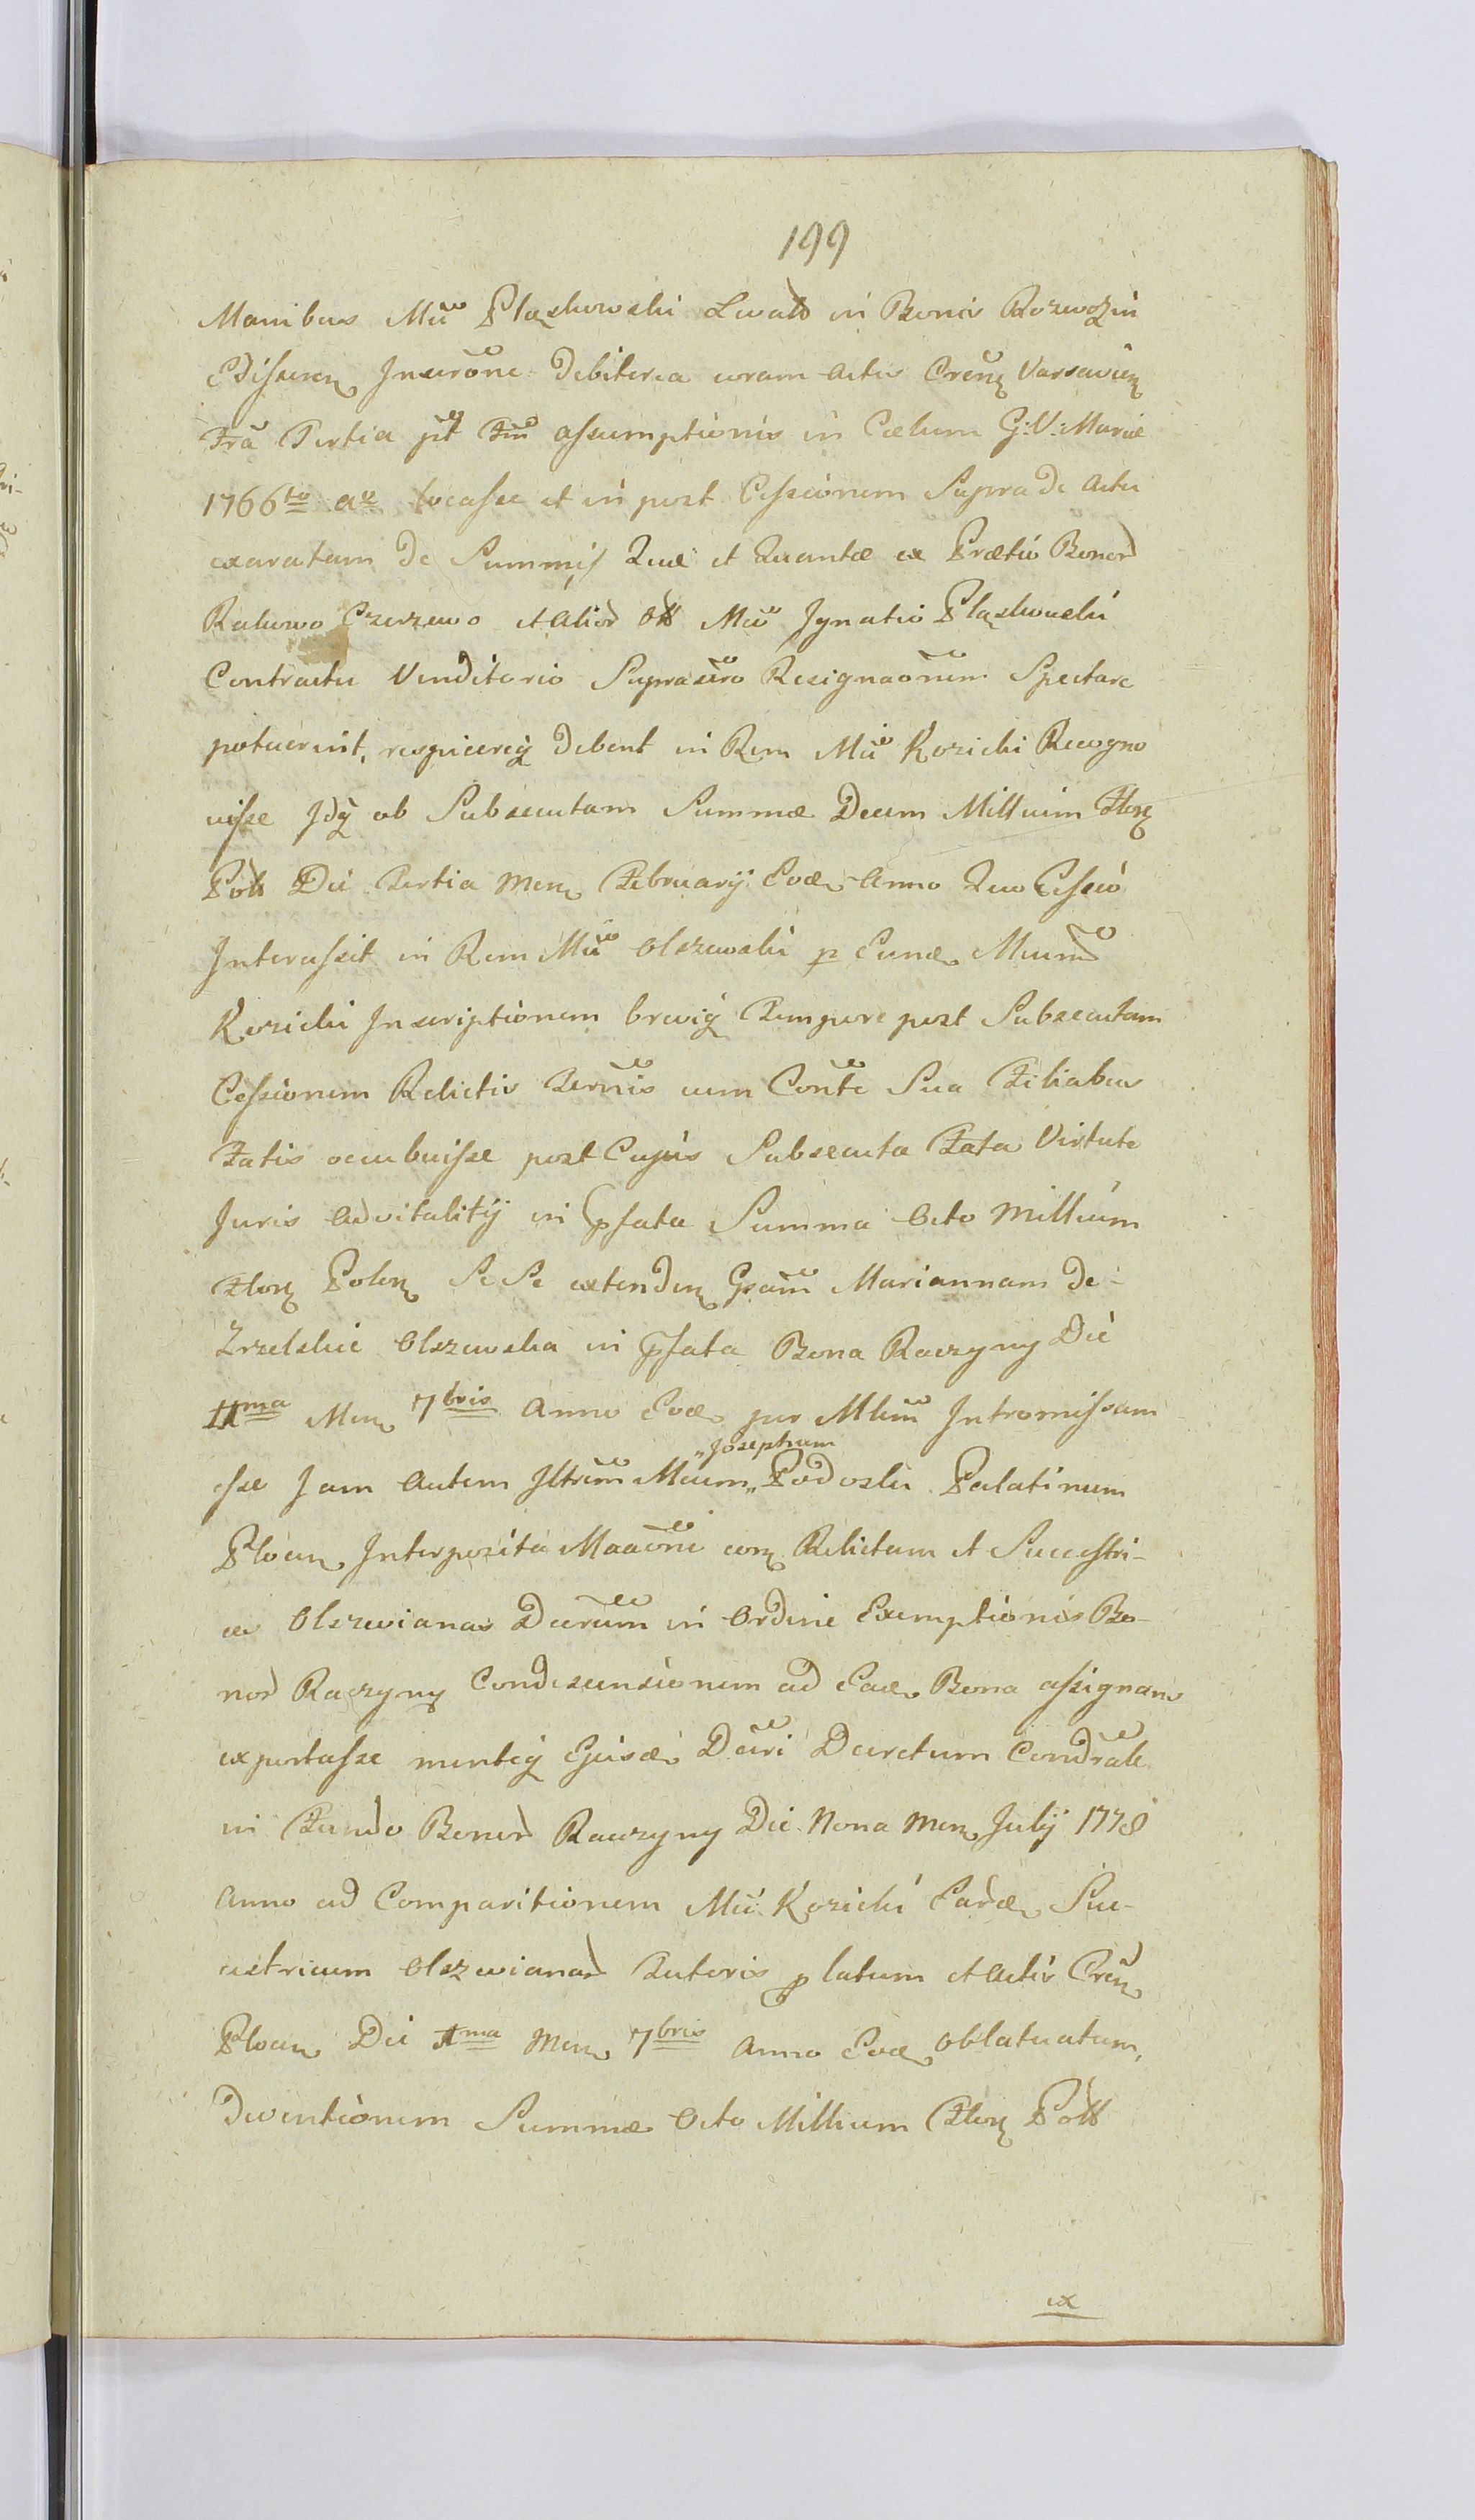 199
Manibus Mci Pląskowski Levats in Bonis Rozwozin
Edissen Inscrone Debitorea coram Actis Cren Varsavien
Fra Tertia pt Ftm assumptionis in Cælum G: V: Mariæ
1766to ao locasse et in post Cessionem Supra de Actu
exaratam De Summis Quæ et Quantæ ex Prætio Bonor
Rakowo Czerzewo et Alior Mco Ignatio Pląskowski
Contractu Venditorio Suprascro Resignaonem Spectare
potuerint, respicereq debent in Rem Mci Kozicki Recogno
visse Idq ob Subsecutam Summæ Decem Millium Flor
Poll Die Tertia Men February Eod Anno Quo Cessio
Intercessit in Rem Mci Olszewski p Eund Mcum
Kozicki Inscriptionem breviq Tempore post Subsecutam
Cessionem Relictis Ternis cum Conte Sua Filiabus
Fatis occubuisse post Cujus Subsecuta Fata Virtute
Juris Advitality in Pfata Summa Octo Millium
Flor Polon Se Se extenden Gsam Mariannam de
Zrzelskie Olszewska in Pfata Bona Raczyny Die
11ma Men 7bris Anno Eod per Mlem Intromissam
esse Jam Autem Iltrem Mcum „Josephum„ Podoski Palatinum
Plocen Interposita Maaone cora Relictam et Succestri-
ces Olszewianas Decretum in Ordine Exemptionis Bo-
nor Raczyny Condescensionem ad Ead Bona assignans
exportasse menteq Ejusd Decri Decretum Condrale
in Fundo Bonor Raczyny Die Nona Men July 1778
Anno ad Comparitionem Mci Kozicki Eard Suc-
cetricum Olszewianar Tutoris platum et Actis Cren
Plocen Die 1ma Men 7bris Anno Eod oblatuatum,
Deventionem Summæ Octo Millium Flor Poll
ex